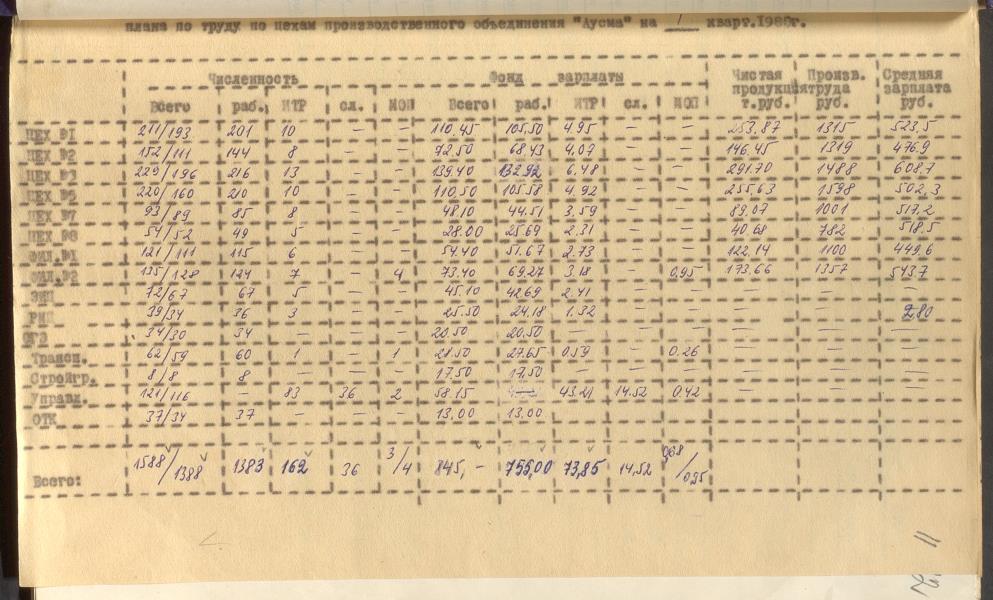 плана по труду по цехам производственного объединения "Аусма" на I кварт.1988г.
Численность Фонд зарплаты Чистая Произв. Средняя
продукция труда зарплата
Всего раб. ИТР сл. МОП Всего раб. ИТР сл. МОП т.руб. руб. руб.
ЦЕХ №1 211/193 201 10 — — 110,45 105,50 4,95 — — 253,87 1315 523,5
ЦЕХ №2 152/111 144 8 — — 72,50 68,43 4,07 — — 146,45 1319 476,9
ЦЕХ №3 229/196 216 13 — — 139,40 132,92 6,48 — — 291,70 1488 608,7
ЦЕХ №5 220/160 210 10 — — 110,50 105,58 4,92 — — 255,63 1598 502,3
ЦЕХ №7 93/89 85 8 — — 48,10 44,51 3,59 — — 89,07 1001 517,2
ЦЕХ №8 54/52 49 5 — — 28,00 25,69 2,31 — — 40,68 782 518,5
ФИЛ.№1 121/111 115 6 — — 54,40 51,67 2,73 — — 122,14 1100 449,6
ФИЛ.№2 135/128 124 7 — 4 73,40 69,27 3,18 — 0,95 173,66 1357 543,7
72/67 67 5 — — 45,10 42,69 2,41 — — — — —
39/34 36 3 — — 25,50 24,18 1,32 — — — — 280
34/30 34 — — — 20,50 20,50 — — — — — —
Трансп. 62/59 60 1 — 1 28,50 27,65 0,59 — 0,26 — — —
Стройгр. 8/8 8 — — — 17,50 17,50 — — — — — —
Управл. 121/116 — 83 36 2 58,15 — 14,52 0,42 — — —
ОТК 37/34 37 — — — 13,00 13,00 — — — — — —
Всего: 1588/1388 1383 162 36 3/4 845,- 755,00 73,85 14,52 0,68/0,95
11